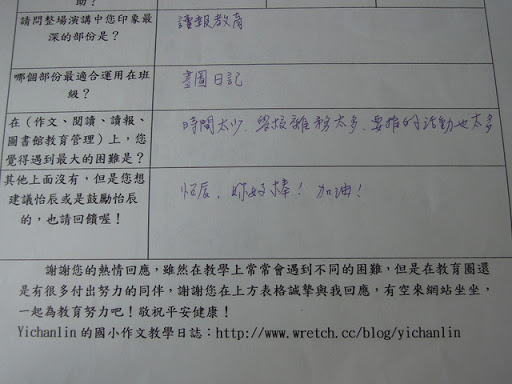 助？
請問整場演講中您印象最
深的部份是？
讀報教育
哪個部份最適合運用在班
級？
畫圖日記
在（作文、閱讀、讀報、
圖書館教育管理）上，您
覺得遇到最大的困難是？
時間太少、學校雜務太多、要推的活動也太多
其他上面沒有，但是您想
建議怡辰或是鼓勵怡辰
的，也請回饋喔！
怡辰，妳好棒！加油！
謝謝您的熱情回應，雖然在教學上常常會遇到不同的困難，但是在教育圈還
是有很多付出努力的同伴，謝謝您在上方表格誠摯與我回應，有空來網站坐坐，
一起為教育努力吧！敬祝平安健康！
Yichanlin 的國小作文教學日誌：http://www.wretch.cc/blog/yichanlin